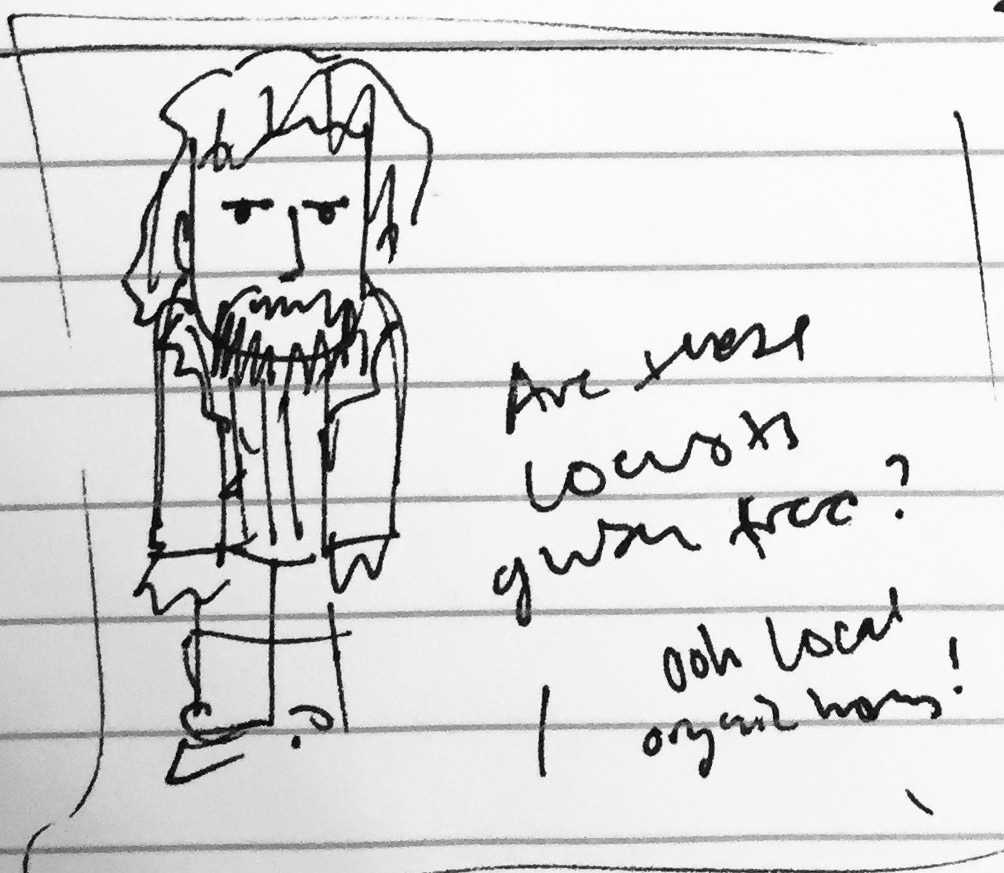 Are these
locusts
gluten free?
ooh local
organic honey!